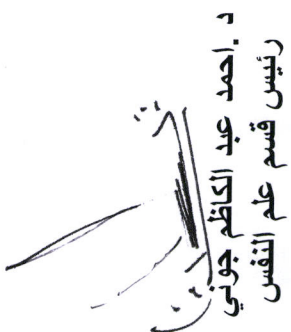 د.احمد عبد الكاظم جوني
رئيس قسم علم النفس